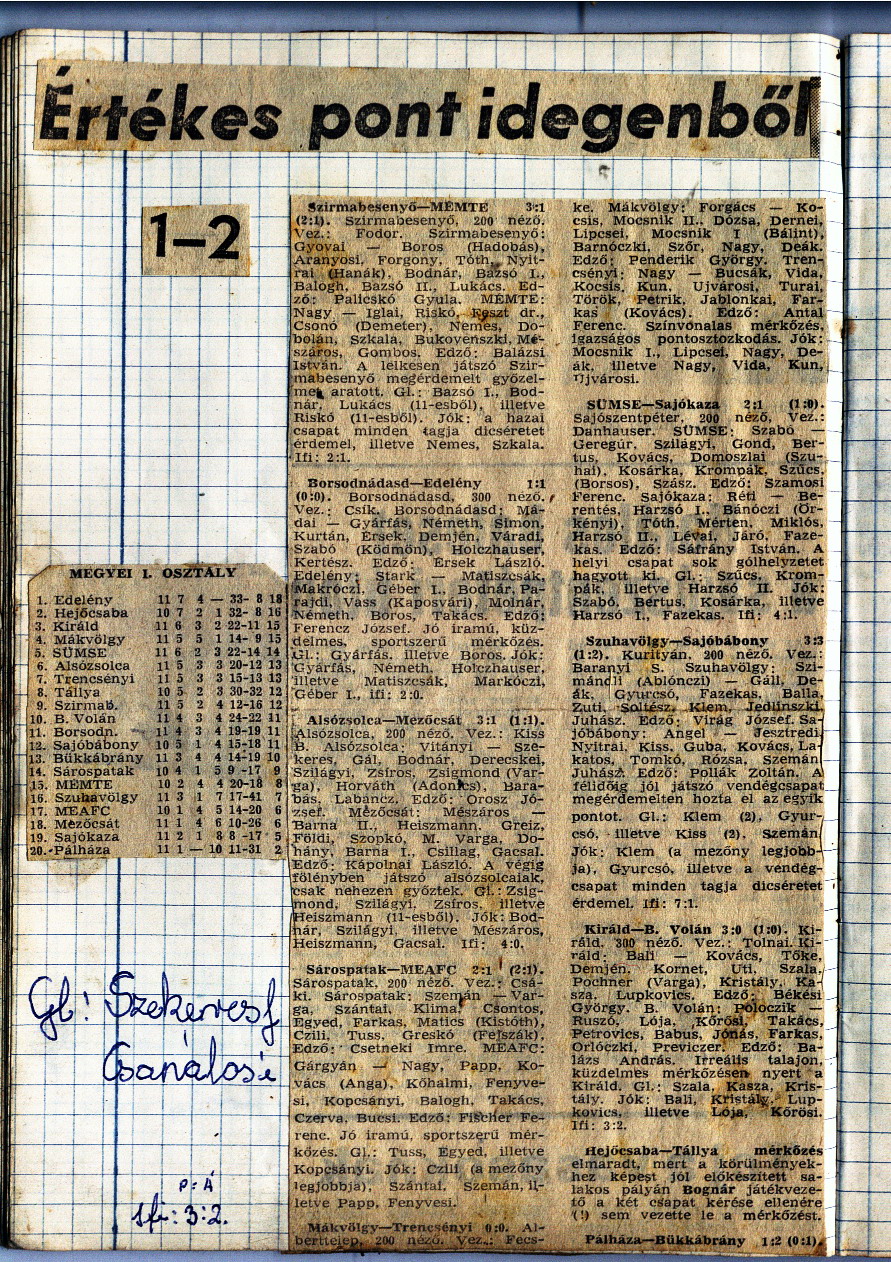 Értékes pont idegenből
1—2
MEGYEI I. OSZTÁLY
1. Edelény 11 7 4 — 33- 8 18
2. Hejőcsaba 10 7 2 1 32- 8 16
3. Királd 11 6 3 2 22-11 15
4. Mákvölgy 11 5 5 1 14- 9 15
5. SÜMSE 11 6 2 3 22-14 14
6. Alsózsolca 11 5 3 3 20-12 13
7. Trencsényi 11 5 3 3 15-13 13
8. Tállya 10 5 2 3 30-32 12
9. Szirmab. 11 5 2 4 12-16 12
10. B. Volán 11 4 3 4 24-22 11
11. Borsodn. 11 4 3 4 19-19 11
12. Sajóbábony 10 5 1 4 15-18 11
13. Bükkábrány 11 3 4 4 14-19 10
14. Sárospatak 10 4 1 5 9 -17 9
15. MÉMTE 10 2 4 4 20-18 8
16. Szuhavölgy 11 3 1 7 17-41 7
17. MEAFC 10 1 4 5 14-20 6
18. Mezőcsát 11 1 4 6 10-26 6
19. Sajókaza 11 2 1 8 8 -17 5
20. Pálháza 11 1 — 10 11-31 2
Gl: Szekeres f
Csanálosi
P: Á
Ifi: 3:2.
Szirmabesenyő—MÉMTE 3:1
(2:1). Szirmabesenyő, 200 néző.
Vez.: Fodor. Szirmabesenyő:
Gyovai — Boros (Hadobás),
Aranyosi, Forgony, Tóth, Nyit-
rai (Hanák), Bodnár, Bazsó I.,
Balogh, Bazsó II., Lukács. Ed-
ző: Palicskó Gyula. MÉMTE:
Nagy — Iglai, Riskó, Feszt dr.,
Csonó (Demeter), Nemes, Do-
bolán, Szkala, Bukovenszki, Mé-
száros, Gombos. Edző: Balázsi
István. A lelkesen játszó Szir-
mabesenyő megérdemelt győzel-
met aratott. Gl.: Bazsó I., Bod-
nár, Lukács (11-esből), illetve
Riskó (11-esből). Jók: a hazai
csapat minden tagja dicséretet
érdemel, illetve Nemes, Szkala.
Ifi: 2:1.
Borsodnádasd—Edelény 1:1
(0:0). Borsodnádasd, 300 néző.
Vez.: Csík. Borsodnádasd: Má-
dai — Gyárfás, Németh, Simon,
Kurtán, Érsek, Demjén, Váradi,
Szabó (Ködmön), Holczhauser,
Kertész. Edző: Érsek László.
Edelény: Stark — Matiszcsák,
Makróczi, Géber I., Bodnár, Pa-
rajdi, Vass (Kaposvári), Molnár,
Németh, Boros, Takács. Edző:
Ferencz József. Jó iramú, küz-
delmes, sportszerű mérkőzés.
Gl.: Gyárfás, illetve Boros. Jók:
Gyárfás, Németh, Holczhauser,
illetve Matiszcsák, Markóczi,
Géber I., ifi: 2:0.
Alsózsolca—Mezőcsát 3:1 (1:1).
Alsózsolca, 200 néző. Vez.: Kiss
B. Alsózsolca: Vitányi — Sze-
keres, Gál, Bodnár, Derecskei,
Szilágyi, Zsíros, Zsigmond (Var-
ga), Horváth (Adonics), Bara-
bás, Labancz, Edző: Orosz Jó-
zsef. Mezőcsát: Mészáros —
Barna II., Heiszmann. Greiz,
Földi, Szopkó, M. Varga, Do-
hány, Barna I., Csillag, Gacsal.
Edző: Kápolnai László. A végig
fölényben játszó alsózsolcaiak,
csak nehezen győztek. Gl.: Zsig-
mond, Szilágyi, Zsíros, illetve
Heiszmann (11-esből). Jók: Bod-
nár, Szilágyi, illetve Mészáros,
Heiszmann, Gacsal. Ifi: 4:0.
Sárospatak—MEAFC 2:1 (2:1).
Sárospatak, 200 néző. Vez.: Csá-
ki. Sárospatak: Szemán — Var-
ga, Szántai, Klima, Csontos,
Egyed, Farkas, Matics (Kistóth),
Czili, Tuss, Greskó (Felszák),
Edző: Csetneki Imre. MEAFC:
Gárgyán — Nagy, Papp, Ko-
vács (Anga), Kőhalmi, Fenyve-
si, Kopcsányi, Balogh, Takács,
Czerva, Bucsi. Edző: Fischer Fe-
renc. Jó iramú, sportszerű mér-
kőzés. Gl.: Tuss, Egyed, illetve
Kopcsányi. Jók: Czili (a mezőny
legjobbja), Szántai, Szemán, il-
letve Papp, Fenyvesi.
Mákvölgy—Trencsényi 0:0. Al-
berttelep, 200 néző. Vez.: Fecs-
ke. Mákvölgy: Forgács — Ko-
csis, Mocsnik II., Dózsa, Dernei,
Lipcsei, Mocsnik I (Bálint),
Barnóczki, Szőr, Nagy, Deák.
Edző: Penderik György. Tren-
csényi: Nagy — Bucsák, Vida,
Kocsis, Kun, Ujvárosi, Turai,
Török, Petrik, Jablonkai, Far-
kas (Kovács). Edző: Antal
Ferenc. Színvonalas mérkőzés,
igazságos pontosztozkodás. Jók:
Mocsnik I., Lipcsei, Nagy, De-
ák, illetve Nagy, Vida, Kun,
Ujvárosi.
SÜMSE—Sajókaza 2:1 (1:0).
Sajószentpéter, 200 néző, Vez.:
Danhauser. SÜMSE: Szabó —
Geregúr, Szilágyi, Gond, Ber-
tus, Kovács, Domoszlai (Szu-
hai), Kosárka, Krompák, Szűcs,
(Borsos), Szász. Edző: Szamosi
Ferenc. Sajókaza: Réti — Be-
rentés, Harzsó I., Bánóczi (Ör-
kényi), Tóth, Mérten, Miklós,
Harzsó II., Lévai, Járó, Faze-
kas. Edző: Sáfrány István. A
helyi csapat sok gólhelyzetet
hagyott ki. Gl.: Szűcs, Krom-
pák, illetve Harzsó II. Jók:
Szabó, Bertus, Kosárka, illetve
Harzsó I., Fazekas. Ifi: 4:1.
Szuhavölgy—Sajóbábony 3:3
(1:2). Kurityán, 200 néző. Vez.:
Baranyi S. Szuhavölgy: Szi-
mándli (Ablónczi) — Gáll, De-
ák, Gyurcsó, Fazekas, Balla,
Zuti, Soltész, Klem, Jedlinszki,
Juhász. Edző: Virág József. Sa-
jóbábony: Angel — Jesztredi,
Nyitrai, Kiss, Guba, Kovács, La-
katos, Tomkó, Rózsa, Szemán,
Juhász. Edző: Pollák Zoltán. A
félidőig jól játszó vendégcsapat
megérdemelten hozta el az egyik
pontot. Gl.: Klem (2), Gyur-
csó, illetve Kiss (2), Szemán.
Jók: Klem (a mezőny legjobb-
ja), Gyurcsó, illetve a vendég-
csapat minden tagja dicséretet
érdemel. Ifi: 7:1.
Királd—B. Volán 3:0 (1:0). Ki-
ráld, 300 néző. Vez.: Tolnai. Ki-
ráld: Bali — Kovács, Tőke,
Demjén, Kornet, Uti, Szala,
Pochner (Varga), Kristály, Ka-
sza, Lupkovics. Edző: Békési
György. B. Volán: Poloczik —
Ruszó, Lója, Kőrösi, Takács,
Petrovics, Babus, Jónás, Farkas,
Orlóczki, Previczer. Edző: Ba-
lázs András. Irreális talajon,
küzdelmes mérkőzésen nyert a
Királd. Gl.: Szala, Kasza, Kris-
tály. Jók: Bali, Kristály, Lup-
kovics, illetve Lója, Kőrösi.
Ifi: 3:2.
Hejőcsaba—Tállya mérkőzés
elmaradt, mert a körülmények-
hez képest jól előkészített sa-
lakos pályán Bognár játékveze-
tő a két csapat kérése ellenére
(!) sem vezette le a mérkőzést.
Pálháza—Bükkábrány 1:2 (0:1).